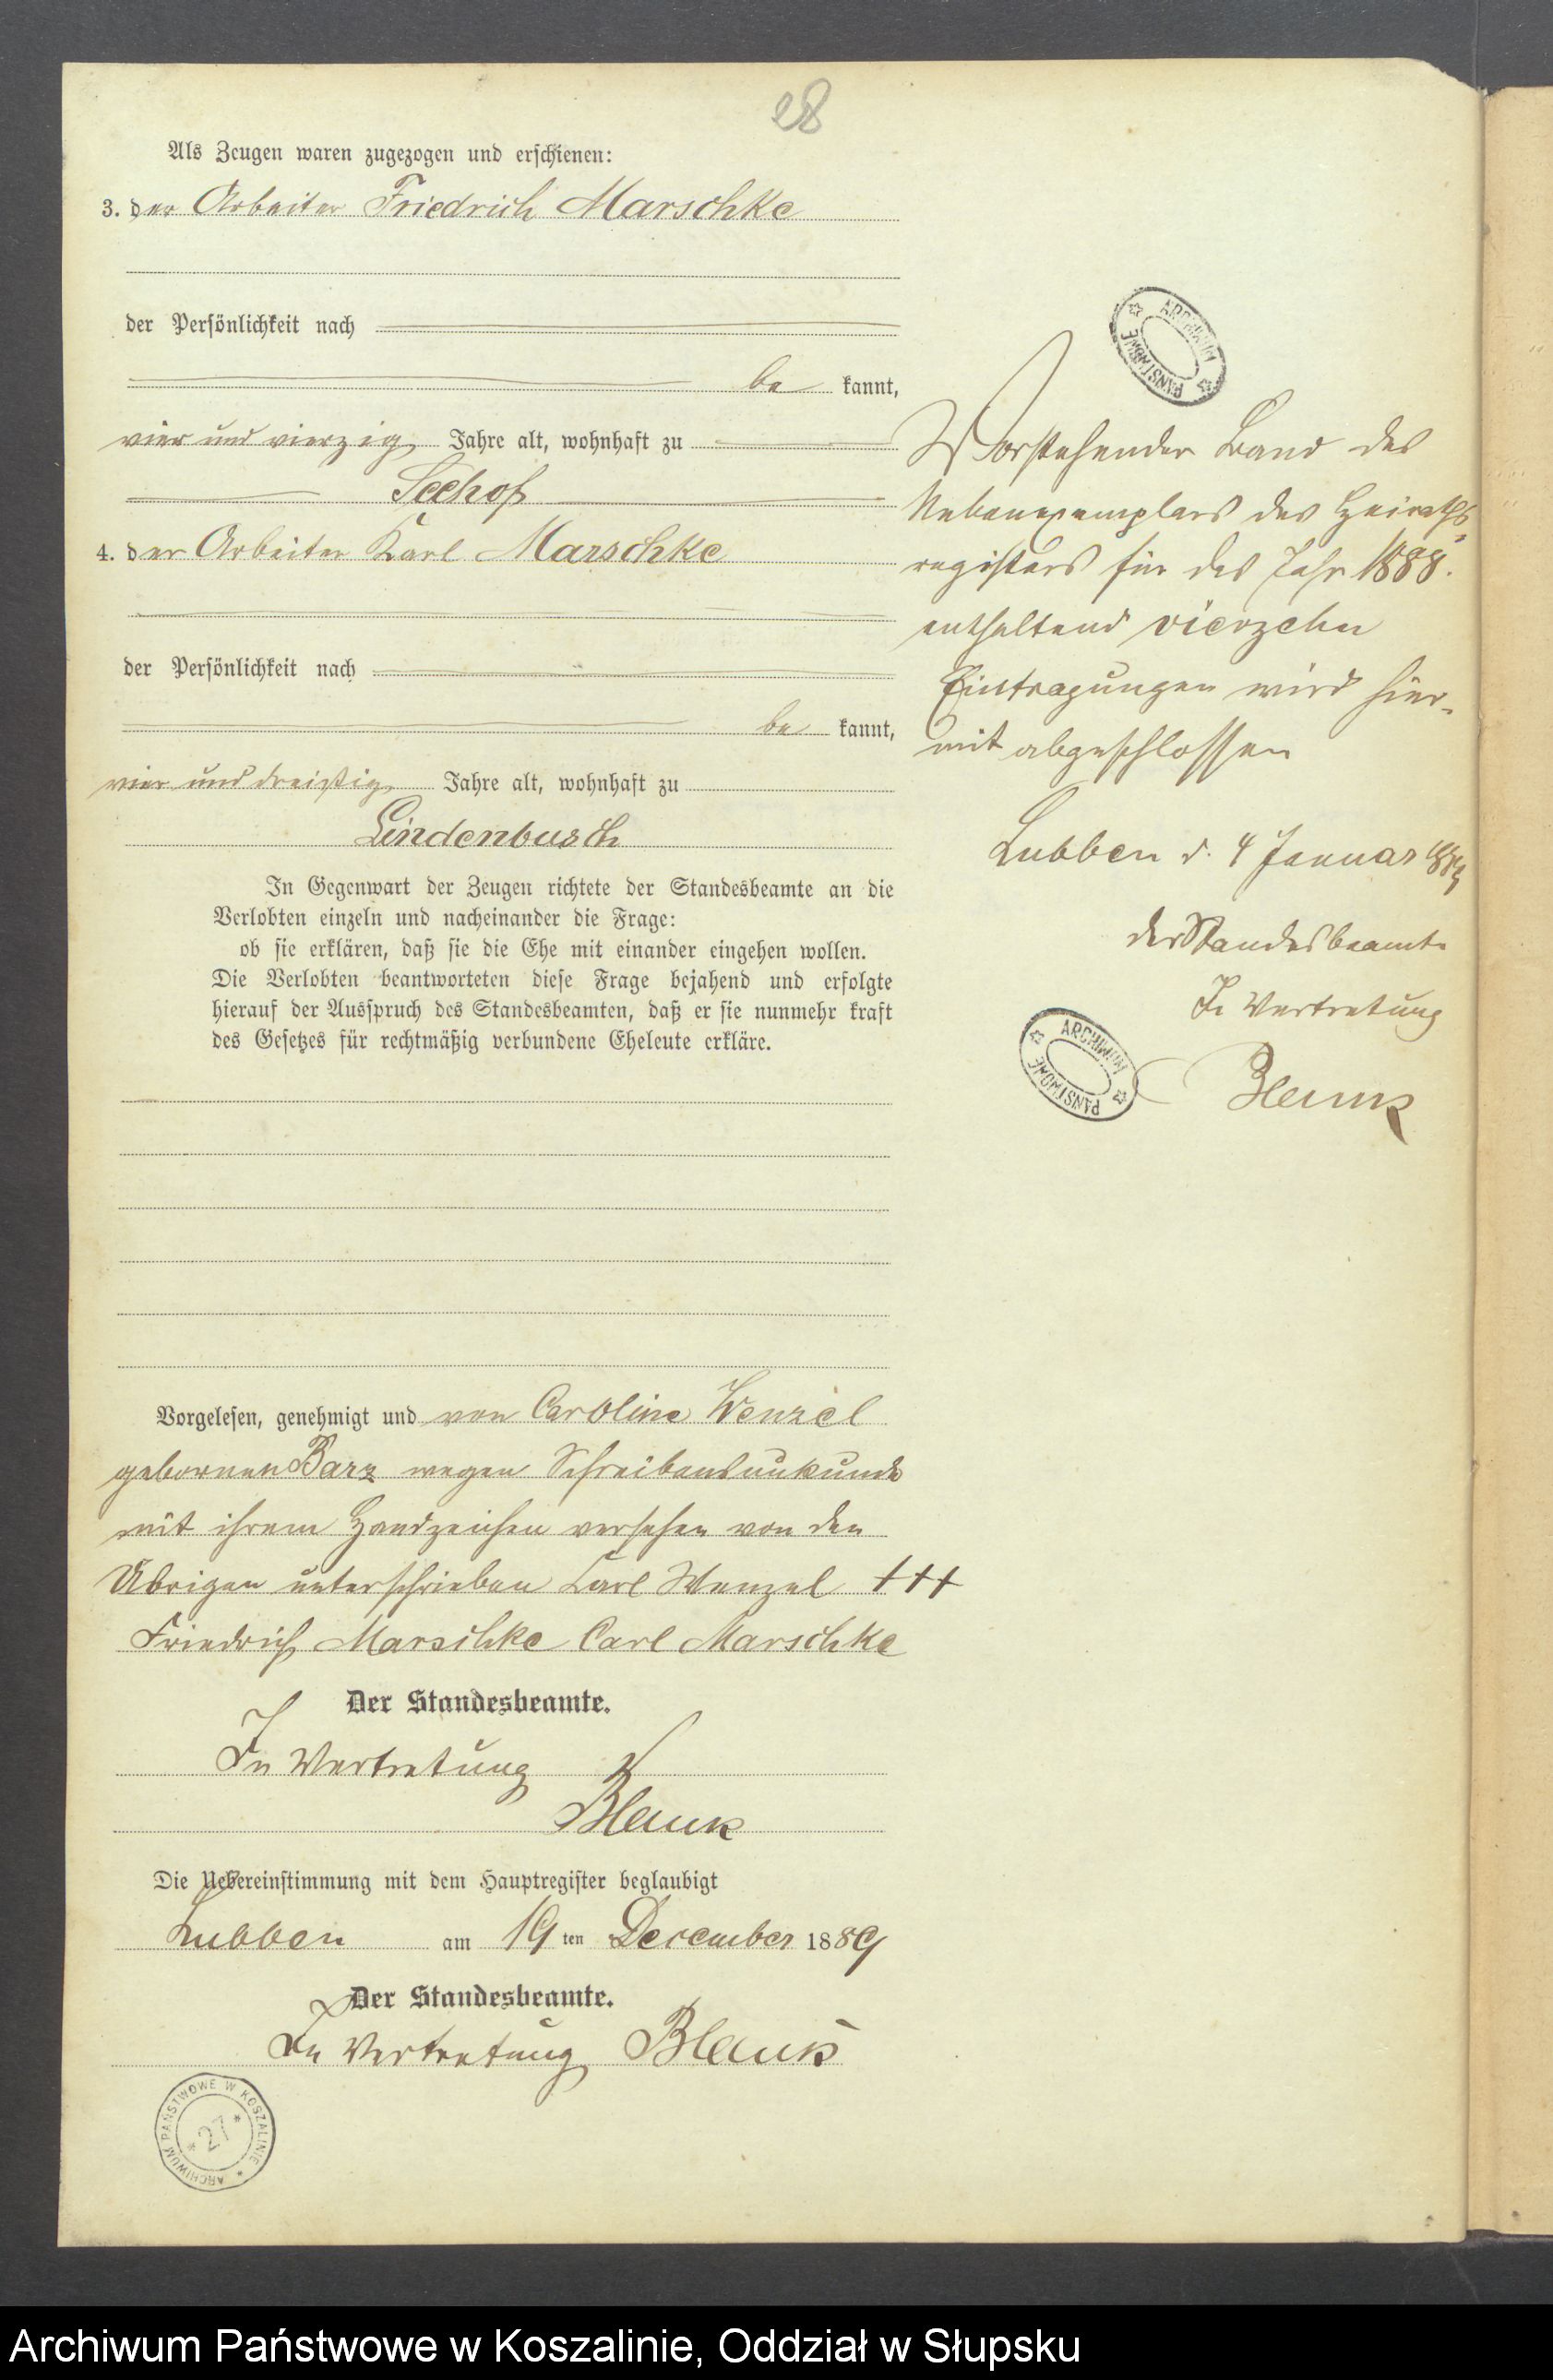 28
Als Zeugen waren zugezogen und erschienen:
3. der Arbeiter Friedrich Marschke
der Persönlichkeit nach
be kannt,
vier und vierzig Jahre alt, wohnhaft zu
Seehof
4. der Arbeiter Karl Marschke
der Persönlichkeit nach
be kannt,
vier und dreißig Jahre alt, wohnhaft zu
Lindenbusch
In Gegenwart der Zeugen richtete der Standesbeamte an die
Verlobten einzeln und nacheinander die Frage:
ob sie erklären, daß sie die Ehe mit einander eingehen wollen.
Die Verlobten beantworteten diese Frage bejahend und erfolgte
hierauf der Ausspruch des Standesbeamten, daß er sie nunmehr kraft
des Gesetzes für rechtmäßig verbundene Eheleute erkläre.
Vorgelesen, genehmigt und von Caroline Wenzel
gebornen Barz wegen Schreibensunkunde
mit ihrem Handzeichen versehen von den
Übrigen unterschrieben Carl Wenzel +++
Friedrich Marschke Carl Marschke
Der Standesbeamte.
In Vertretung
Blank
Die Uebereinstimmung mit dem Hauptregister beglaubigt
Lubben am 19 ten December 1889
Der Standesbeamte.
In Vertretung Blank
ARCHIWUM PAŃSTWOWE W KOSZALINIE
* 27 *
ARCHIWUM PAŃSTWOWE
Vorstehender Band des
Nebenexemplars des Heiraths-
registers für das Jahr 1888.
enthaltend vierzehn
Eintragungen wird hier-
mit abgeschlossen
Lubben d. 4 Januar
der Standesbeamte
In Vertretung
Blank
ARCHIWUM PAŃSTWOWE
Archiwum Państwowe w Koszalinie, Oddział w Słupsku